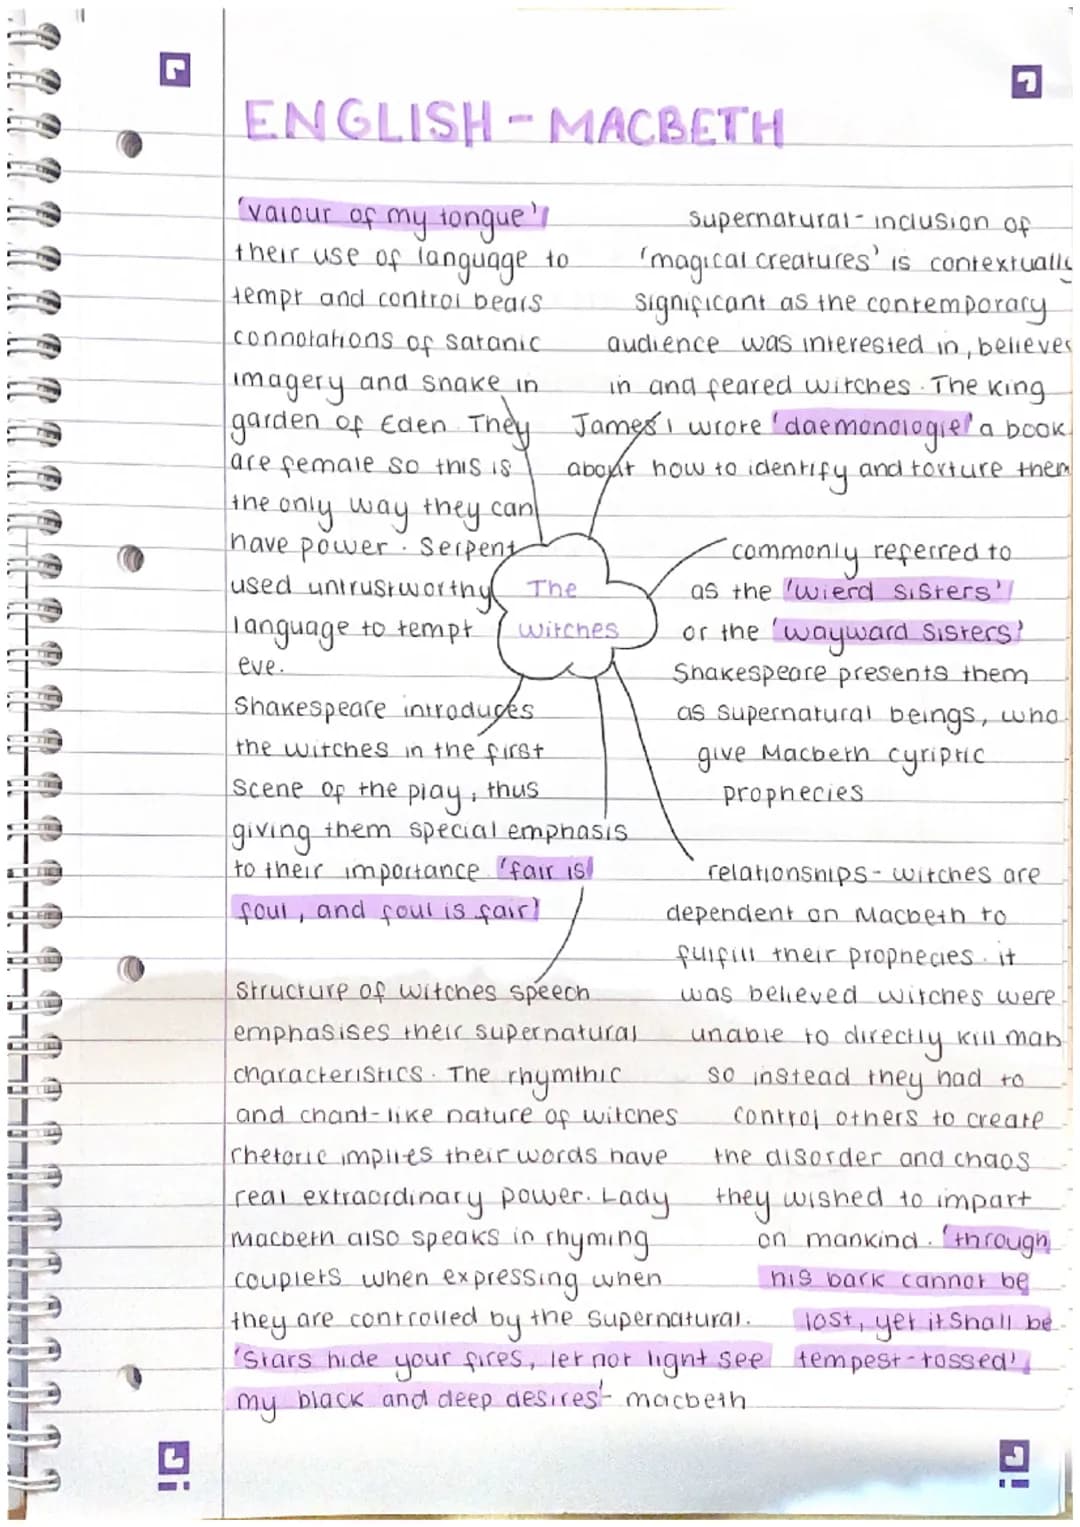 ENGLISH - MACBETH
'valour of my tongue'
their use of language to
tempt and control bears
connotations of satanic
imagery and snake in
garden of Eden. They
are female so this is
the only way they can
have power. Serpent
used untrustworthy
language to tempt
eve.
Supernatural - inclusion of
'magical creatures' is contextually
significant as the contemporary
audience was interested in, believes
in and feared witches. The King
James I wrote 'daemonologie' a book
about how to identify and torture them
The
Witches
commonly referred to
as the 'wierd sisters'
or the 'wayward sisters'
Shakespeare presents them
as supernatural beings, who
give Macbeth cyriptic
prophecies
Shakespeare introduces
the witches in the first
scene of the play, thus
giving them special emphasis
to their importance. 'fair is
foul, and foul is fair'
relationships - witches are
dependent on Macbeth to
fulfill their prophecies. it
was believed witches were
unable to directly kill man
so instead they had to
control others to create
the disorder and chaos
they wished to impart
on mankind. 'through
his bark cannot be
lost, yet it shall be
tempest-tossed'
Structure of witches speech
emphasises their supernatural
characteristics. The rhymthic
and chant-like nature of witches
rhetoric implies their words have
real extraordinary power. Lady
Macbeth also speaks in rhyming
couplets when expressing when
they are controlled by the supernatural.
'Stars hide your fires, let not light see
my black and deep desires' - macbeth